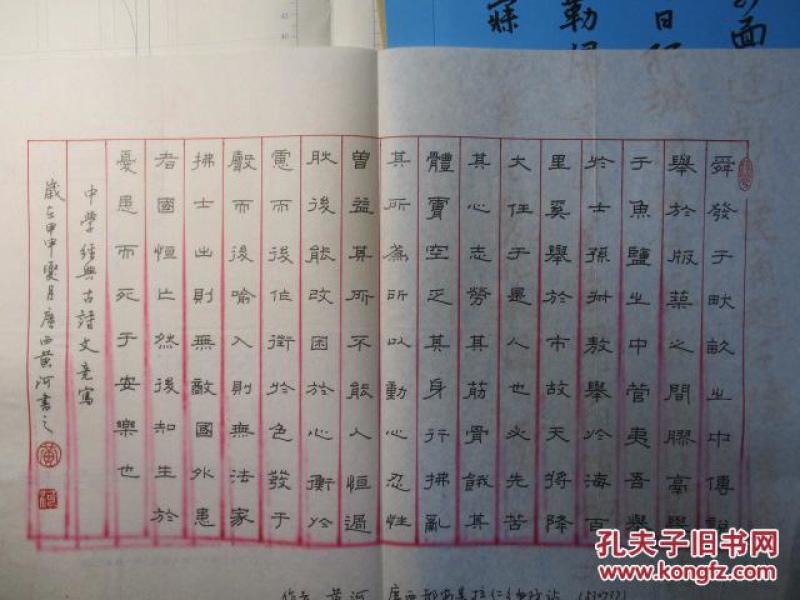 舜發于畎畝之中傅說
舉於版築之間膠鬲舉
于魚鹽之中管夷吾舉
於士孫叔敖舉於海百
里奚舉於市故天將降
大任于是人也必先苦
其心志勞其筋骨餓其
體膚空乏其身行拂亂
其所為所以動心忍性
曾益其所不能人恒過
然後能改困於心衡於
慮而後作徵於色發于
聲而後喻入則無法家
拂士出則無敵國外患
者國恒亡然後知生於
憂患而死于安樂也
中学經典古詩文竞寫
歲在甲申夏月廣西黃河書之
作者 黄河 广西
孔夫子旧书网